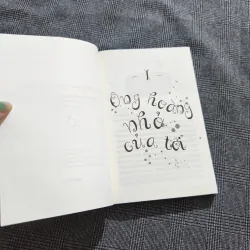 I
Ông hoàng
nhỏ
của tôi